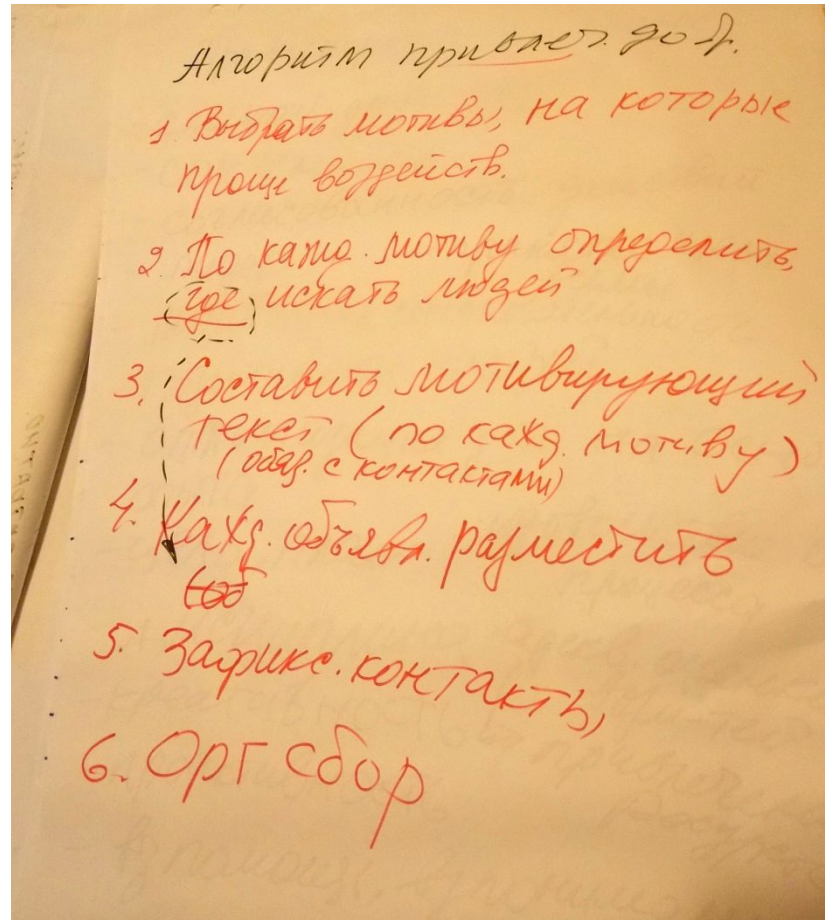 Алгоритм привлеч. до б.
1 Выбрать мотивы, на которые
проще воздейств.
2. По кажд. мотиву определить,
где искать людей
3. Составить мотивирующий
текст (по кажд. мотиву)
(обяз. с контактами)
4. Кажд. объявл. разместить
5. Зафикс. контакты,
6. Орг сбор